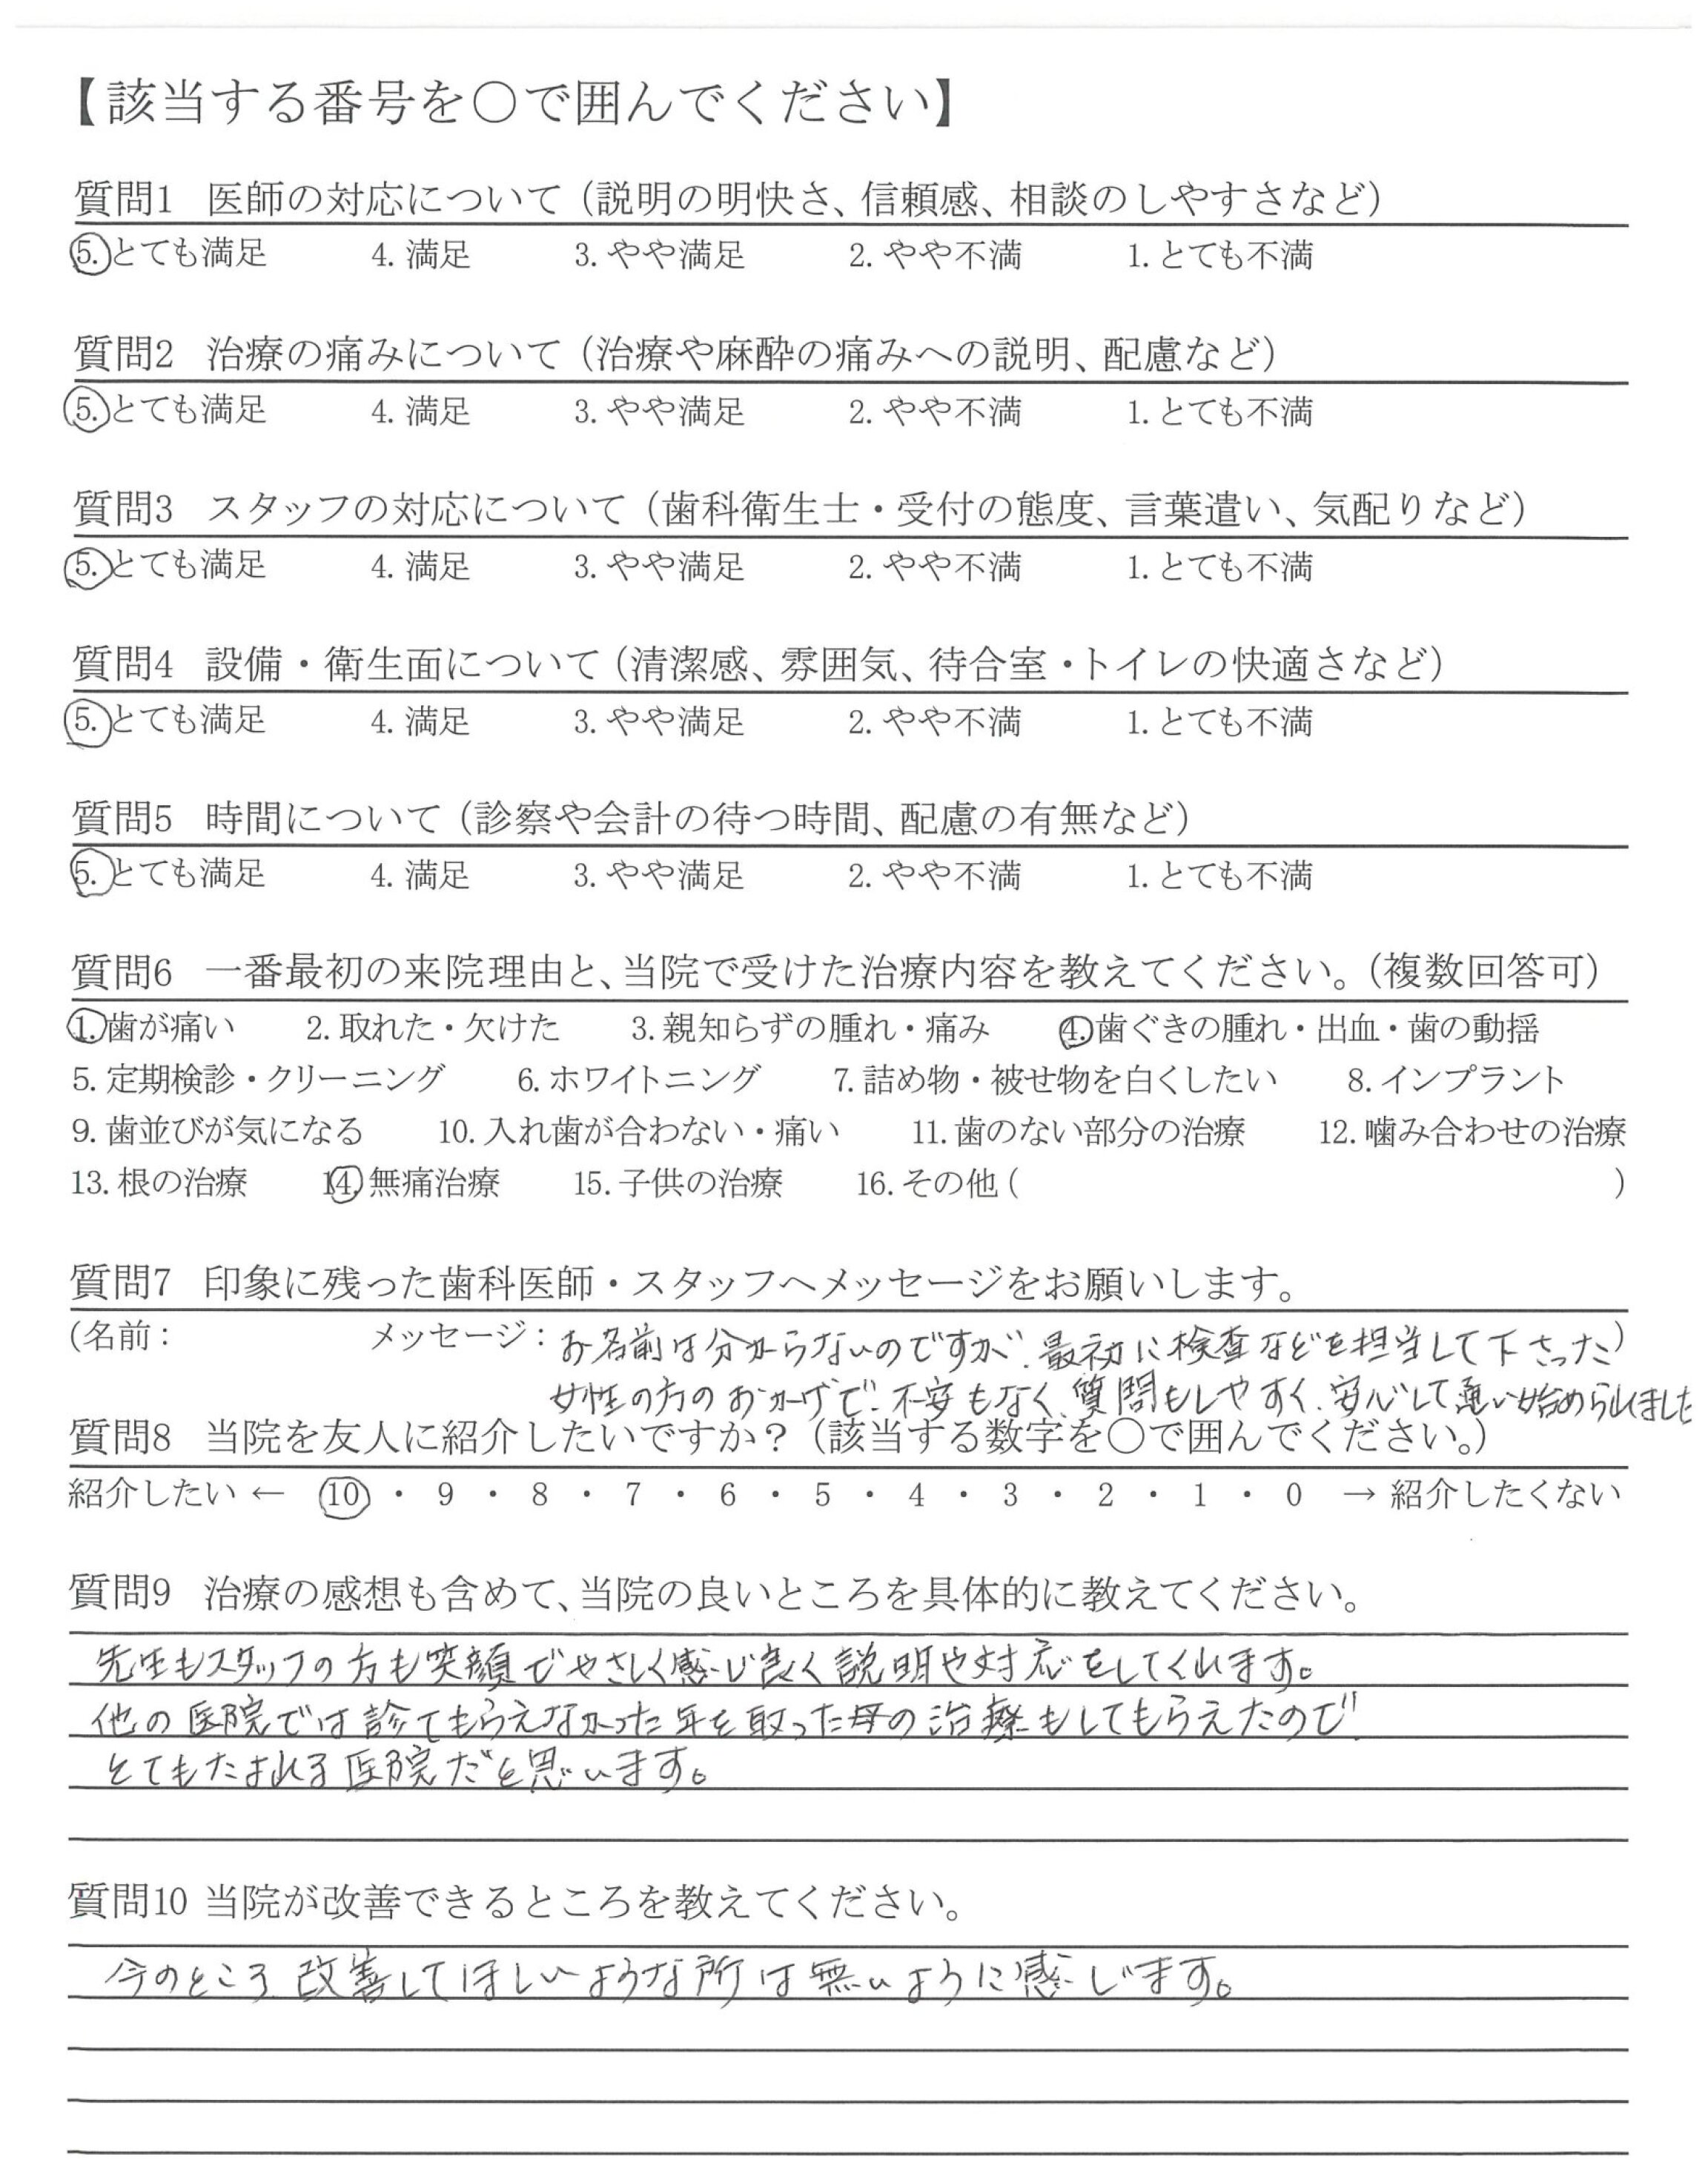 【該当する番号を〇で囲んでください】
質問1 医師の対応について（説明の明快さ、信頼感、相談のしやすさなど）
5. とても満足 4. 満足 3. やや満足 2. やや不満 1. とても不満
質問2 治療の痛みについて（治療や麻酔の痛みへの説明、配慮など）
5. とても満足 4. 満足 3. やや満足 2. やや不満 1. とても不満
質問3 スタッフの対応について（歯科衛生士・受付の態度、言葉遣い、気配りなど）
5. とても満足 4. 満足 3. やや満足 2. やや不満 1. とても不満
質問4 設備・衛生面について（清潔感、雰囲気、待合室・トイレの快適さなど）
5. とても満足 4. 満足 3. やや満足 2. やや不満 1. とても不満
質問5 時間について（診察や会計の待つ時間、配慮の有無など）
5. とても満足 4. 満足 3. やや満足 2. やや不満 1. とても不満
質問6 一番最初の来院理由と、当院で受けた治療内容を教えてください。（複数回答可）
1. 歯が痛い 2. 取れた・欠けた 3. 親知らずの腫れ・痛み 4. 歯ぐきの腫れ・出血・歯の動揺
5. 定期検診・クリーニング 6. ホワイトニング 7. 詰め物・被せ物を白くしたい 8. インプラント
9. 歯並びが気になる 10. 入れ歯が合わない・痛い 11. 歯のない部分の治療 12. 噛み合わせの治療
13. 根の治療 14. 無痛治療 15. 子供の治療 16. その他（ ）
質問7 印象に残った歯科医師・スタッフへメッセージをお願いします。
（名前： メッセージ：お名前は分からないのですが、最初に検査などを担当して下さった）
女性の方のおかげで、不安もなく、質問もしやすく、安心して通い始められました
質問8 当院を友人に紹介したいですか？（該当する数字を〇で囲んでください。）
紹介したい ← 10 ・ 9 ・ 8 ・ 7 ・ 6 ・ 5 ・ 4 ・ 3 ・ 2 ・ 1 ・ 0 → 紹介したくない
質問9 治療の感想も含めて、当院の良いところを具体的に教えてください。
先生もスタッフの方も笑顔でやさしく感じ良く説明や対応をしてくれます。
他の医院では診てもらえなかった年を取った母の治療もしてもらえたので
とてもたよれる医院だと思います。
質問10 当院が改善できるところを教えてください。
今のところ、改善してほしいような所は無いように感じます。